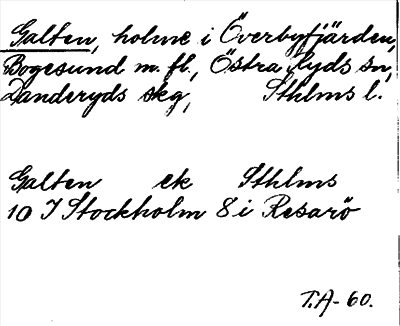 Galten, holme i Överbyfjärden,
Bogesund m. fl., Östra Ryds sn,
Danderyds skg, Sthlms l.
Galten ek Sthlms
10 I Stockholm 8 i Resarö
T.A-60.